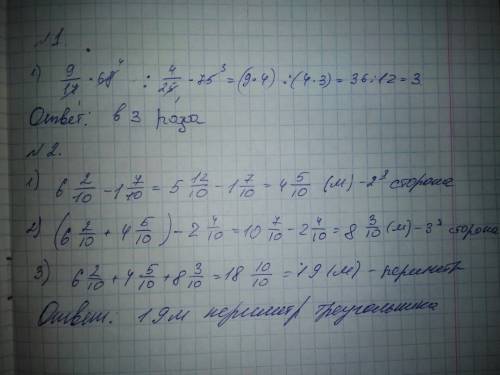 №1.
1) 9/17 · 68⁴ : 4/25 · 75³ = (9·4) : (4·3) = 36:12 = 3
Ответ: в 3 раза
№2.
1) 6 2/10 - 1 7/10 = 5 12/10 - 1 7/10 = 4 5/10 (м) - 2я сторона
2) (6 2/10 + 4 5/10) - 2 4/10 = 10 7/10 - 2 4/10 = 8 3/10 (м) - 3я сторона
3) 6 2/10 + 4 5/10 + 8 3/10 = 18 10/10 = 19 (м) - периметр
Ответ: 19м периметр треугольника